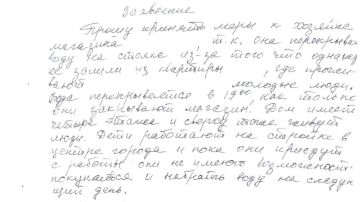 Заявление
Прошу принять меры к хозяйке
магазина , т.к. она перекрывает
воду на стояке из-за того что однажды
её залили из квартиры , где прожи
вают молодые люди.
Вода перекрывается в 19 00, как только
они закрывают магазин. Дом имеет
четыре этажа и сверху тоже живут
люди. Дети работают на стройке в
центре города и пока они приедут
с работы они не имеют возможности
покупаться и набрать воду на следую
щий день.